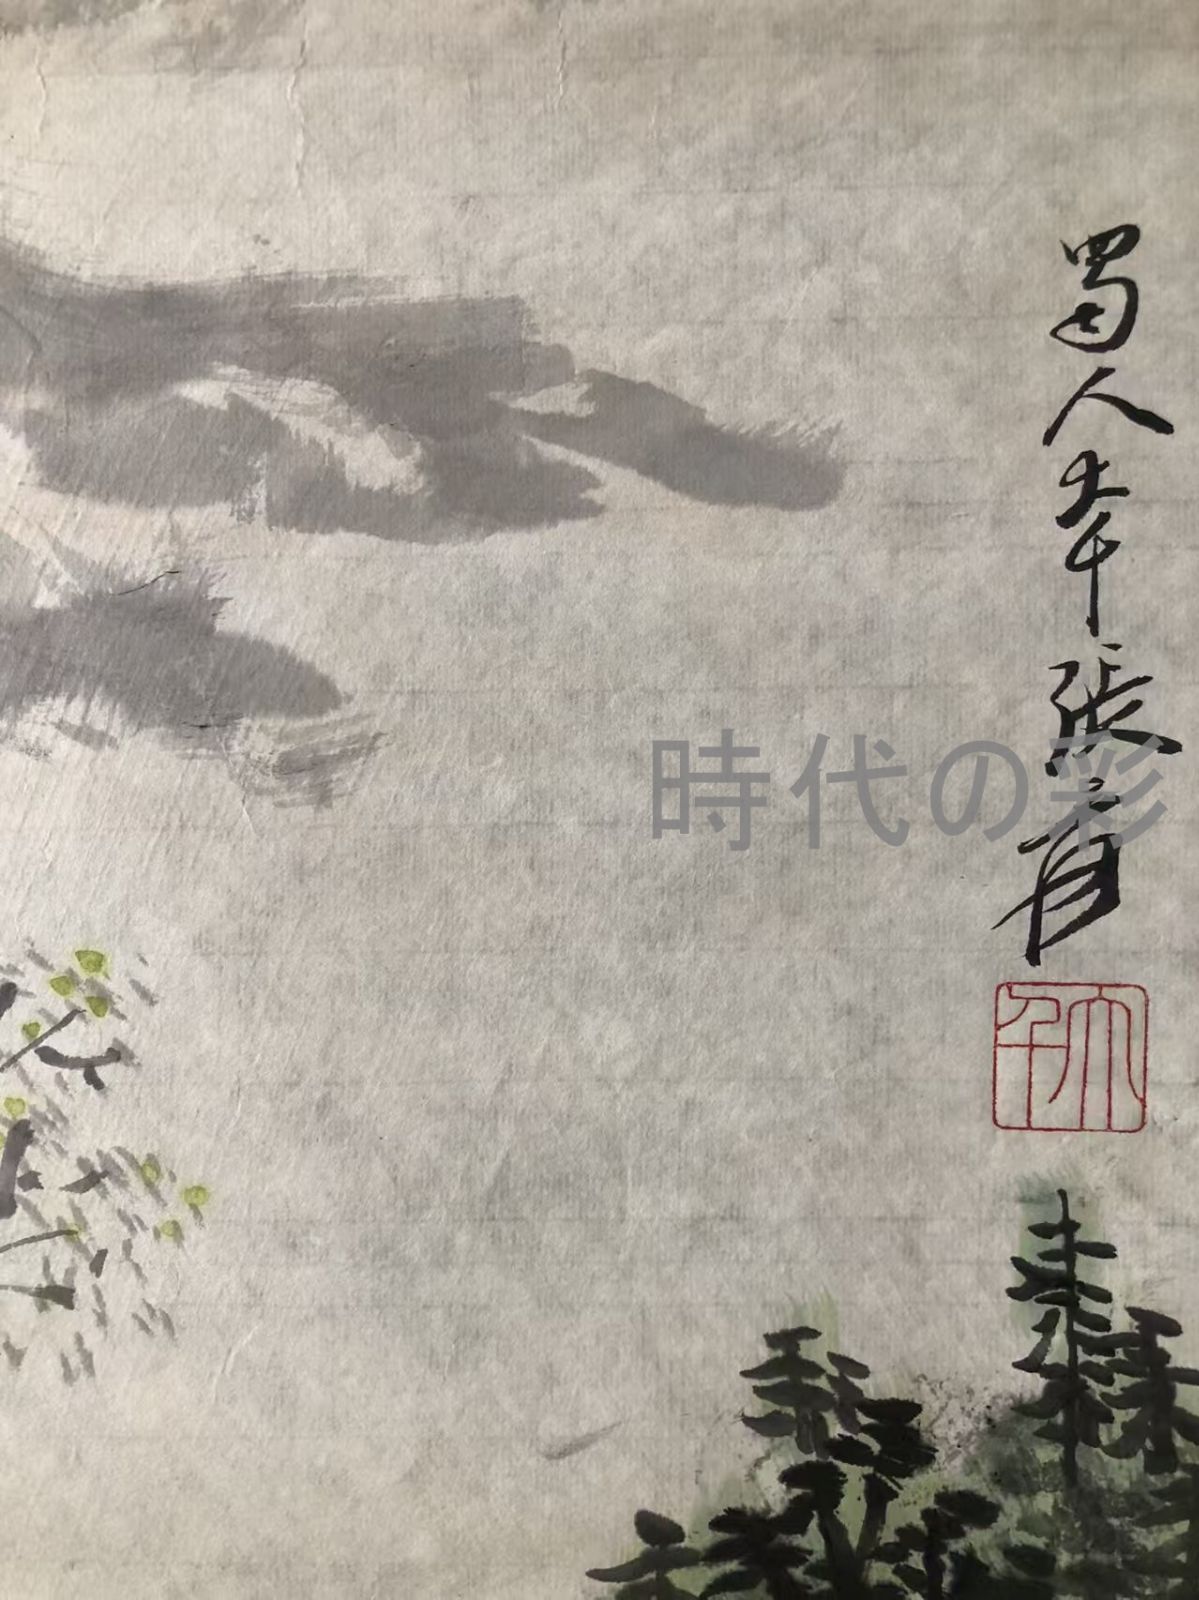 蜀人大千張爰
時代の彩
大千